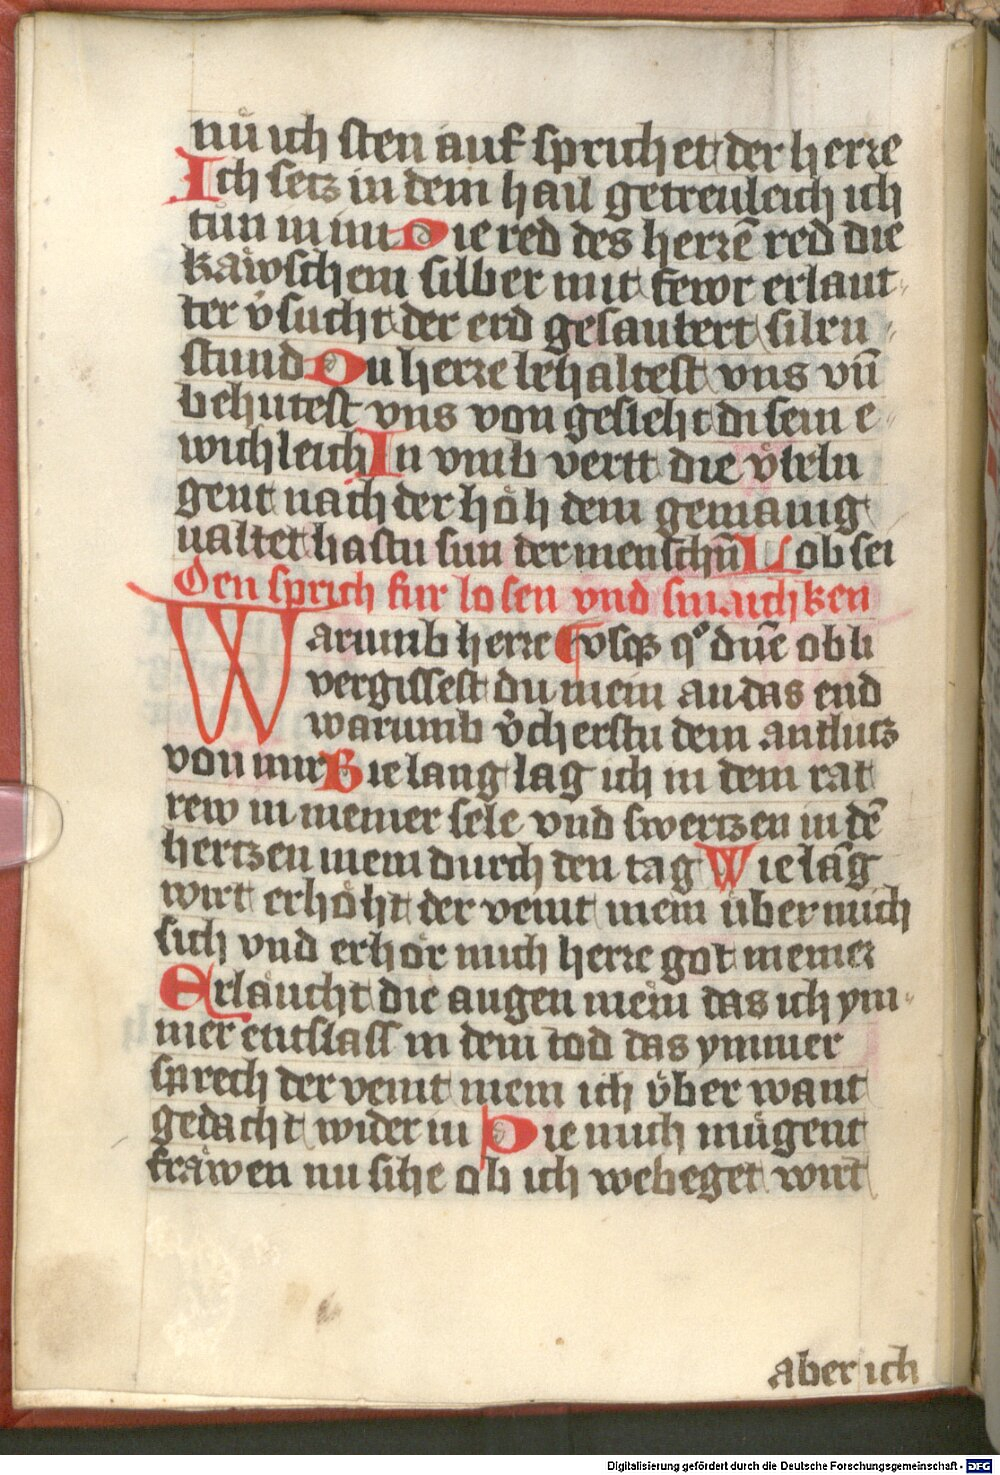 nu ich sten auf sprichet der herre
Ich setz in dem hail getreuleich ich
tun in im Die red des herrē red die
kaͤwschem silber mit fewr erlaut
ter v̉sucht der erd gesautert siben
stund Du herre behaltest vns vn̄
behutest vns von geslecht disem e
wichleich In vmb vertt die v̉beln
gent nach der hoͤh dem gemanig
ualtet hastu sun der menschn̄ Lob sei
Den sprich fur losen vnd smaichken
Warumb herre Vsq; qͦ dn̄e obli
vergissest du mein an das end
warumb v̉cherstu dein antlutz
von mir Bie lang lag ich in dem rat
rew in meiner sele vnd swertzen in dē
hertzen mein durch den tag Wie lāg
wirt erhoͤht der veint mein uͤber mich
sich vnd erhoͤr mich herre got meiner
Erlaͤucht die augen mein das ich ym
mer entslaff in dem tod das ymmer
sprech der veint mein ich vͤber want
gedacht wider in Die mich muͤgent
fraͤwen nu sihe ob ich webeget wirt
aber ich
Digitalisierung gefördert durch die Deutsche Forschungsgemeinschaft - DFG